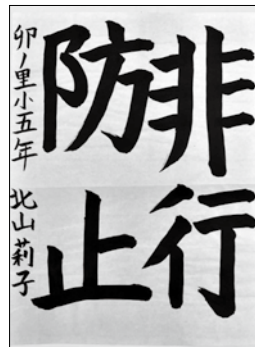 非行
防止
卯ノ里小五年 北山莉子